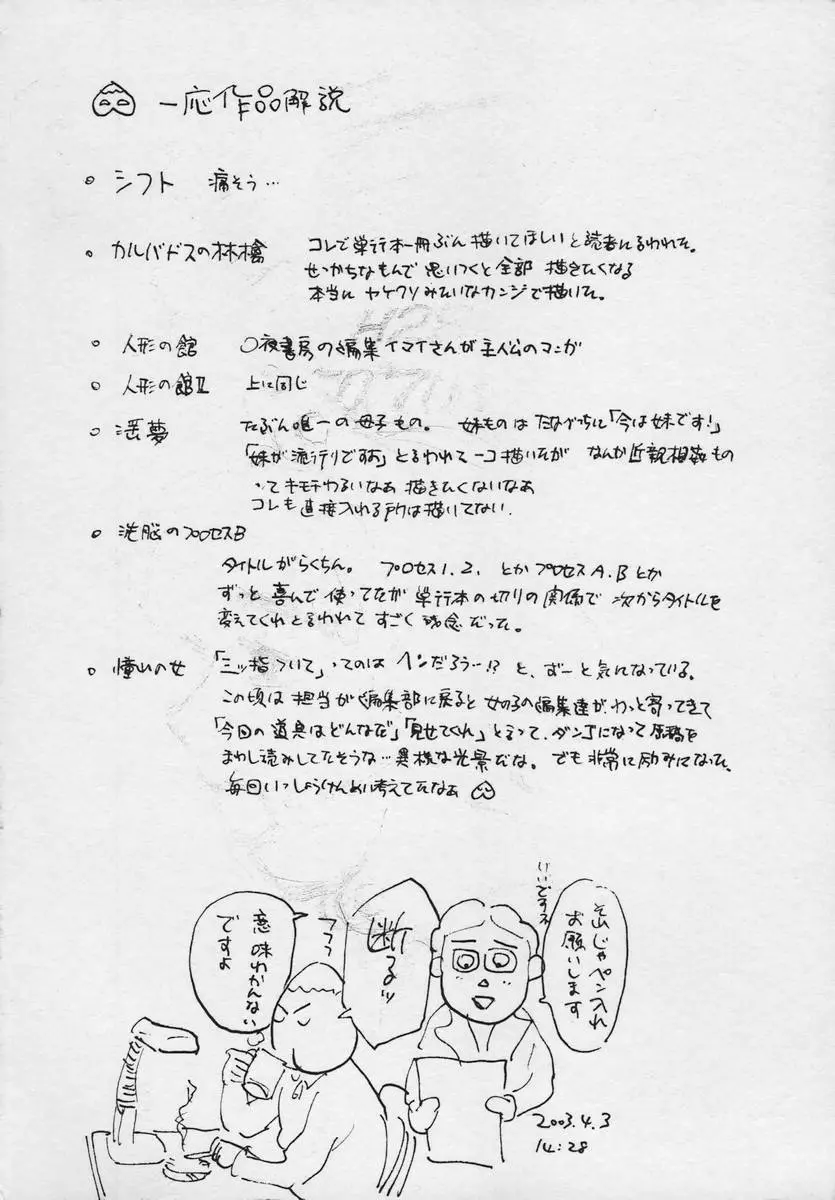 一応作品解説
・シフト 痛そう…
・カルバドスの林檎 コレで単行本一冊ぶん描いてほしいと読者に言われた。
せっかちなもんで思いつくと全部描きたくなる
本当にヤケクソみたいなカンジで描いた。
・人形の館 〇夜書房の編集イマイさんが主人公のマンガ
・人形の館Ⅱ 上に同じ
・淫夢 たぶん唯一の母子もの。 妹ものは たながっちに「今は妹です!」
「妹が流行りですよ」と言われて一コ描いたが なんか近親相姦もの
ってキモチわるいなぁ 描きたくないなぁ
コレも直接入れる所は描いてない.
・洗脳のプロセスB
タイトルがらくちん。 プロセス1.2. とか プロセスA.Bとか
ずっと喜んで使ってたが 単行本の切りの関係で 次からタイトルを
変えてくれと言われて すごく残念だった。
・憧れの女 「三ッ指ついて」ってのは ヘンだろうー!? と、ずーと気になっている。
この頃は担当が編集部に戻ると 女の子の編集達が、わっと寄ってきて
「今回の道具はどんなだ」「見せてくれ」と言って、ダンゴになって原稿を
まわし読みしてたそうな…異様な光景だな。でも非常に励みになった。
毎回いっしょうけんめい考えてたなぁ
そいじゃペン入れ
お願いします
断るッ
フフフ
意味わかんない
ですよ
2003.4.3
14:28